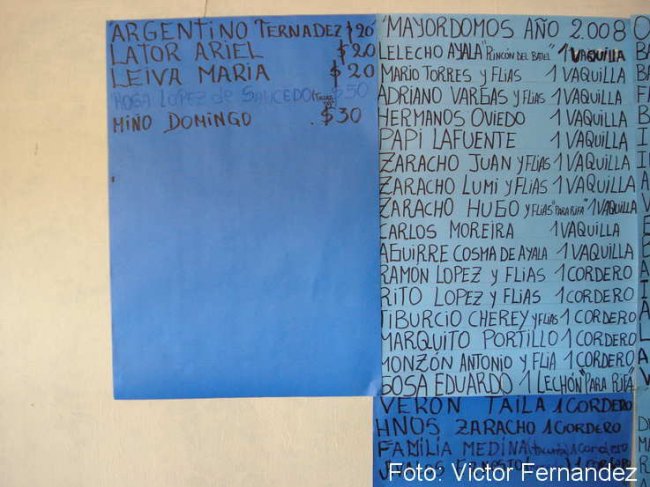 ARGENTINO FERNADEZ $20
LATOR ARIEL $20
LEIVA MARIA $20
ROSA LOPEZ de SAUCEDO $50
MIÑO DOMINGO $30
MAYORDOMOS AÑO 2.008
LELECHO AYALA "RINCÓN DEL BATEL" 1 VAQUILLA
MARIO TORRES Y FLIAS 1 VAQUILLA
ADRIANO VARGAS Y FLIAS 1 VAQUILLA
HERMANOS OVIEDO 1 VAQUILLA
PAPI LAFUENTE 1 VAQUILLA
ZARACHO JUAN Y FLIAS 1 VAQUILLA
ZARACHO LUMI Y FLIAS 1 VAQUILLA
ZARACHO HUGO Y FLIAS "PARA RIFA" 1 VAQUILLA
CARLOS MOREIRA 1 VAQUILLA
AGUIRRE COSMA DE AYALA 1 VAQUILLA
RAMÓN LOPEZ Y FLIAS 1 CORDERO
RITO LOPEZ Y FLIAS 1 CORDERO
TIBURCIO CHEREY Y FLIAS 1 CORDERO
MARQUITO PORTILLO 1 CORDERO
MONZÓN ANTONIO Y FLIA 1 CORDERO
SOSA EDUARDO 1 LECHÓN "PARA RIFA"
VERON TAILA 1 CORDERO
HNOS ZARACHO 1 CORDERO
FAMILIA MEDINA 1 cordero
1 CORDERO
Foto: Victor Fernandez